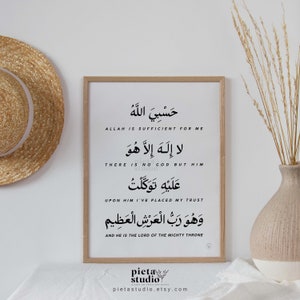 حَسْبِيَ اللَّهُ
ALLAH IS SUFFICIENT FOR ME
لَا إِلَـٰهَ إِلَّا هُوَ
THERE IS NO GOD BUT HIM
عَلَيْهِ تَوَكَّلْتُ
UPON HIM I'VE PLACED MY TRUST
وَهُوَ رَبُّ الْعَرْشِ الْعَظِيمِ
AND HE IS THE LORD OF THE MIGHTY THRONE
pieta
studio
pietastudio.etsy.com